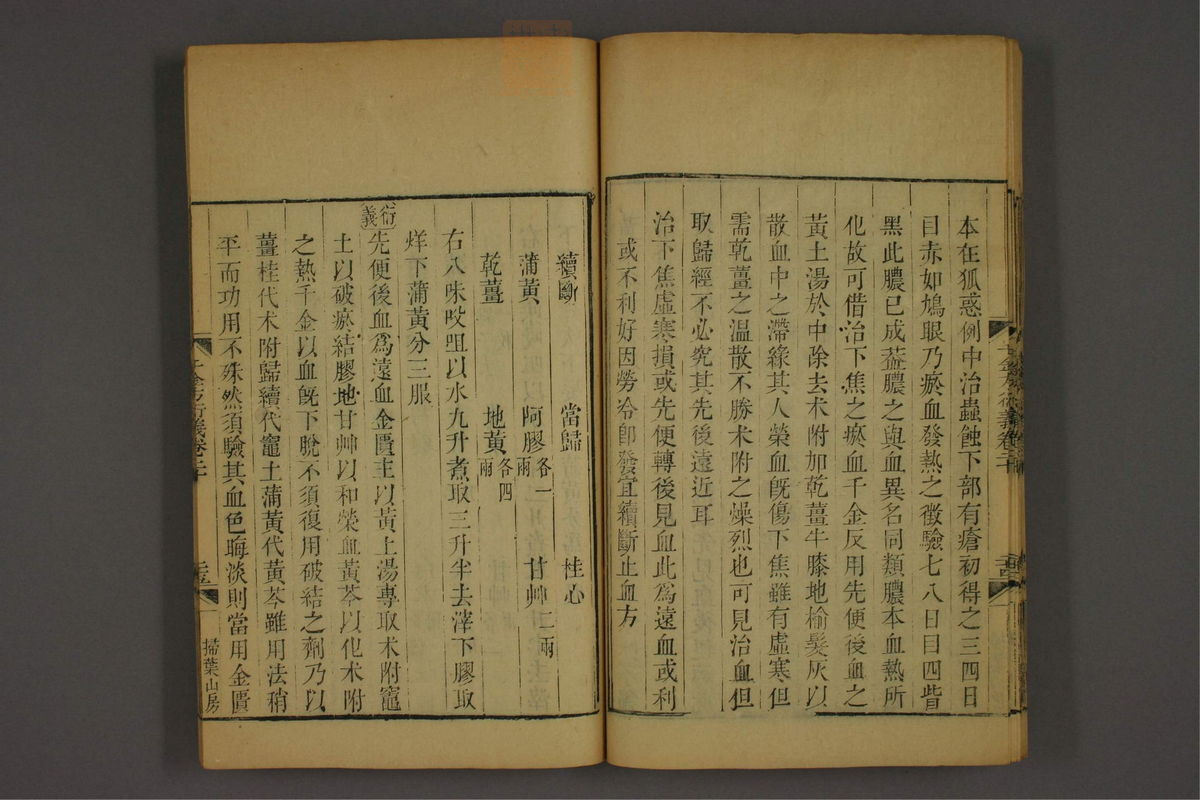 本在狐惑例中治蟲蝕下部有瘡初得之三四日
目赤如鳩眼乃瘀血發熱之徵驗七八日目四眥
黑此膿已成葢膿之與血異名同類膿本血熱所
化故可借治下焦之瘀血千金反用先便後血之
黃土湯於中除去术附加乾薑牛膝地榆髮灰以
散血中之滯緣其人榮血旣傷下焦雖有虛寒但
需乾薑之温散不勝术附之燥烈也可見治血但
取歸經不必究其先後遠近耳
治下焦虛寒損或先便轉後見血此爲遠血或利
或不利好因勞冷卽發宜續斷止血方
千金方衍義卷二十
續斷 當歸 桂心
蒲黃 阿膠各一兩 甘艸二兩
乾薑 地黃各四兩
右八味㕮咀以水九升煮取三升半去滓下膠取
烊下蒲黃分三服
衍義先便後血爲遠血金匱主以黃土湯專取术附竈
土以破瘀結膠地甘艸以和榮血黃芩以化术附
之熱千金以血旣下脫不須復用破結之劑乃以
薑桂代术附歸續代竈土蒲黃代黃芩雖用法稍
平而功用不殊然須驗其血色晦淡則當用金匱
千金方衍義卷二十
掃葉山房